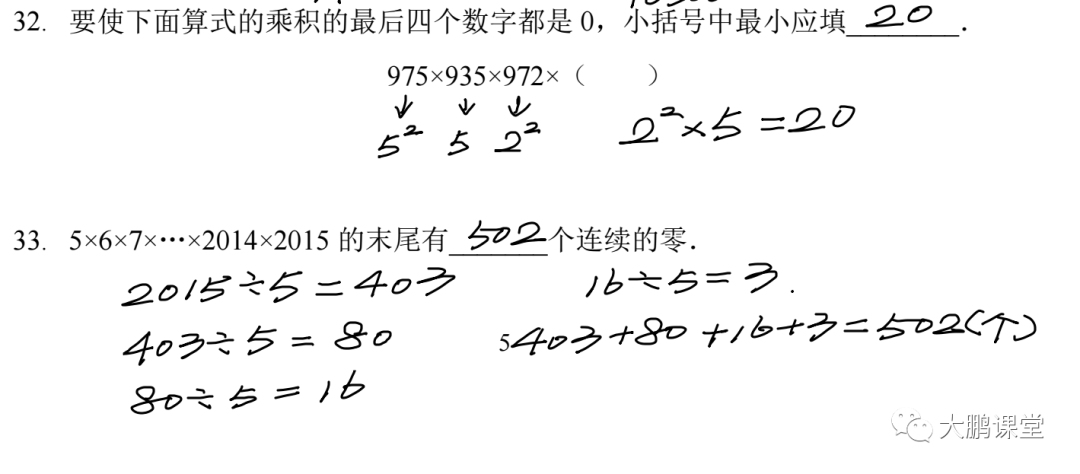 32. 要使下面算式的乘积的最后四个数字都是 0，小括号中最小应填 20 .
975×935×972×（ ）
↓ ↓ ↓
5² 5 2² 2²×5=20
33. 5×6×7×…×2014×2015 的末尾有 502 个连续的零.
2015÷5=403 16÷5=3.
403÷5=80 5 403+80+16+3=502(个)
80÷5=16
大鹏课堂